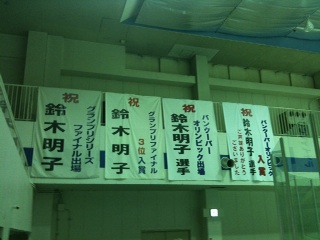 祝
グランプリシリーズ
ファイナル出場
鈴木明子
祝
グランプリファイナル
3位入賞
鈴木明子
祝
バンクーバー
オリンピック出場
鈴木明子選手
祝
バンクーバーオリンピック
入賞
鈴木明子選手
ご声援ありがとう
ございました